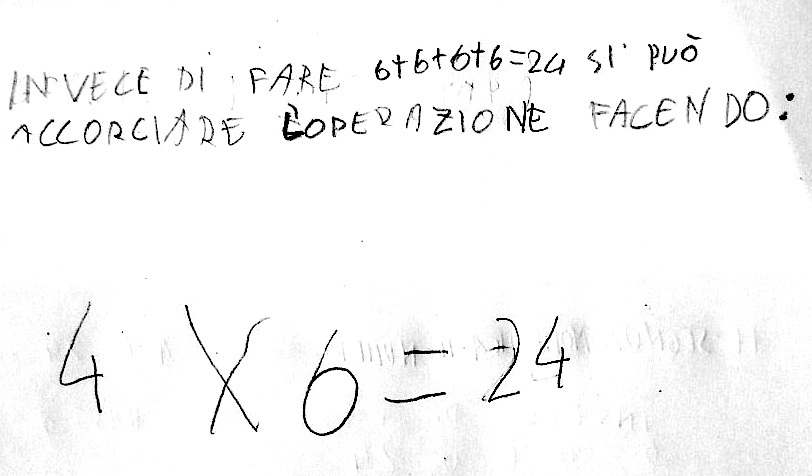 INVECE DI FARE 6+6+6+6=24 SI PUÒ
ACCORCIARE L'OPERAZIONE FACENDO:
4 X 6 = 24